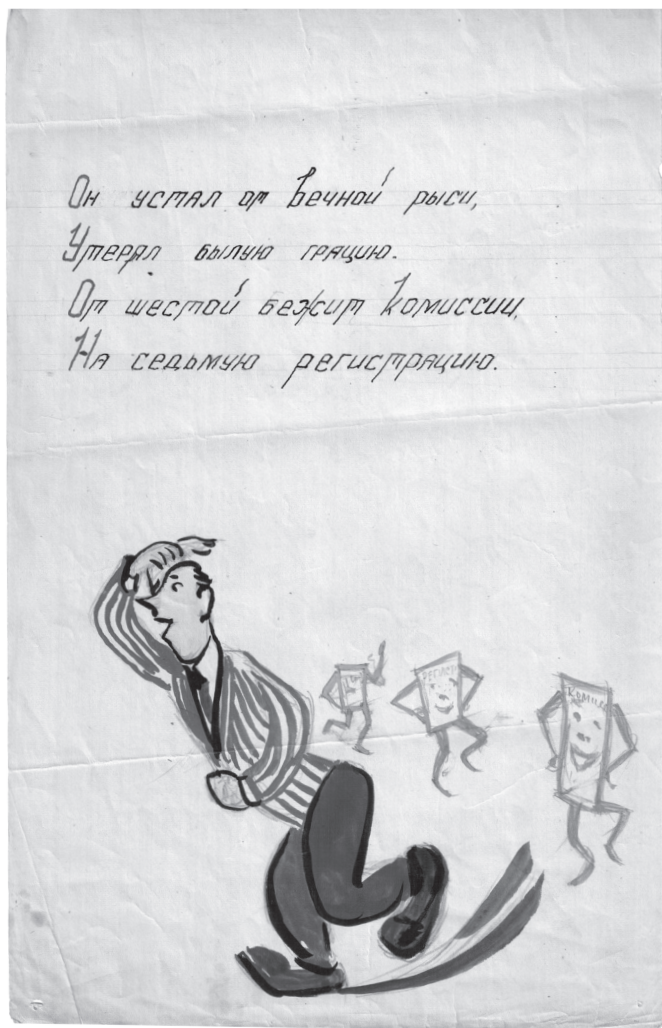 Он устал от вечной рыси,
Утерял былую грацию.
От шестой бежит комиссии,
На седьмую регистрацию.